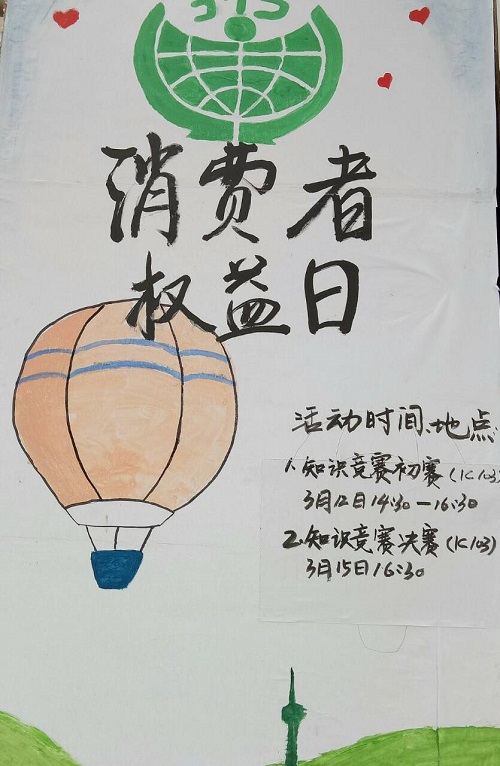 315
消费者
权益日
活动时间、地点
1.知识竞赛初赛(1C103)
3月12日14:30—16:30
2.知识竞赛决赛(1C103)
3月15日16:30